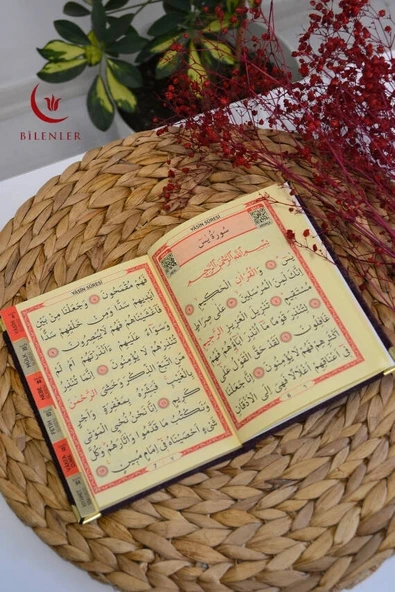 BİLENLER
YÂSÎN SÛRESİ
سُورَةُ يٰسٓ
بِسْمِ اللّٰهِ الرَّحْمٰنِ الرَّحٖيمِ
يٰسٓ وَالْقُرْاٰنِ الْحَكٖيمِ
اِنَّكَ لَمِنَ الْمُرْسَلٖينَ عَلٰى صِرَاطٍ
مُسْتَقٖيمٍ تَنْزٖيلَ الْعَزٖيزِ الرَّحٖيمِ
لِتُنْذِرَ قَوْمًا مَٓا اُنْذِرَ اٰبَٓاؤُهُمْ فَهُمْ
غَافِلُونَ لَقَدْ حَقَّ الْقَوْلُ عَلٰٓى
اَكْثَرِهِمْ فَهُمْ لَا يُؤْمِنُونَ اِنَّا جَعَلْنَا
فٖٓى اَعْنَاقِهِمْ اَغْلَالًا فَهِىَ اِلَى الْاَذْقَانِ
YÂSÎN SÛRESİ
فَهُمْ مُقْمَحُونَ وَجَعَلْنَا مِنْ بَيْنِ
اَيْدٖيهِمْ سَدًّا وَمِنْ خَلْفِهِمْ سَدًّا
فَاَغْشَيْنَاهُمْ فَهُمْ لَا يُبْصِرُونَ
وَسَوَٓاءٌ عَلَيْهِمْ ءَاَنْذَرْتَهُمْ اَمْ لَمْ
تُنْذِرْهُمْ لَا يُؤْمِنُونَ اِنَّمَا تُنْذِرُ
مَنِ اتَّبَعَ الذِّكْرَ وَخَشِىَ الرَّحْمٰنَ
بِالْغَيْبِ فَبَشِّرْهُ بِمَغْفِرَةٍ وَاَجْرٍ
كَرٖيمٍ اِنَّا نَحْنُ نُحْيِى الْمَوْتٰى
وَنَكْتُبُ مَا قَدَّمُوا وَاٰثَارَهُمْ وَكُلَّ
شَىْءٍ اَحْصَيْنَاهُ فٖٓى اِمَامٍ مُبٖينٍ